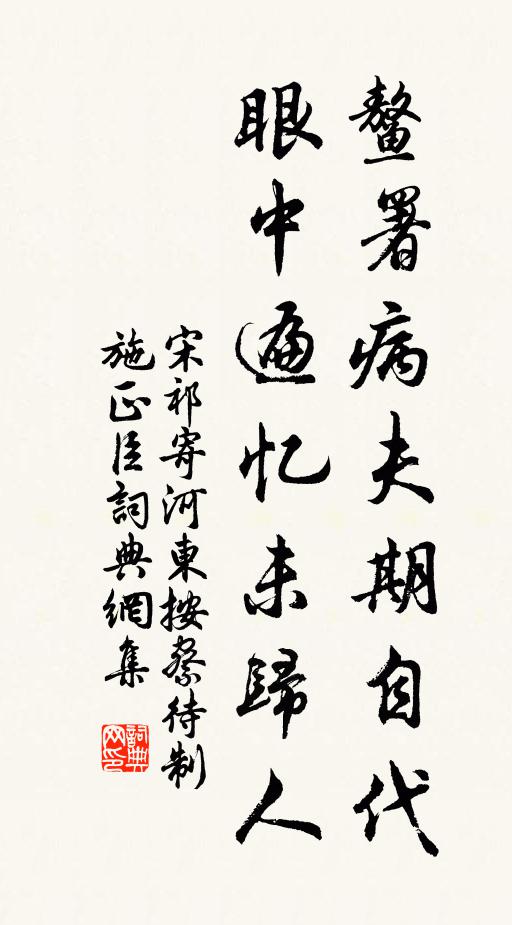 鳌署病夫期自代
眼中遍忆未歸人
宋祁寄河東按察待制
施正臣詞典網集
詞典
网印